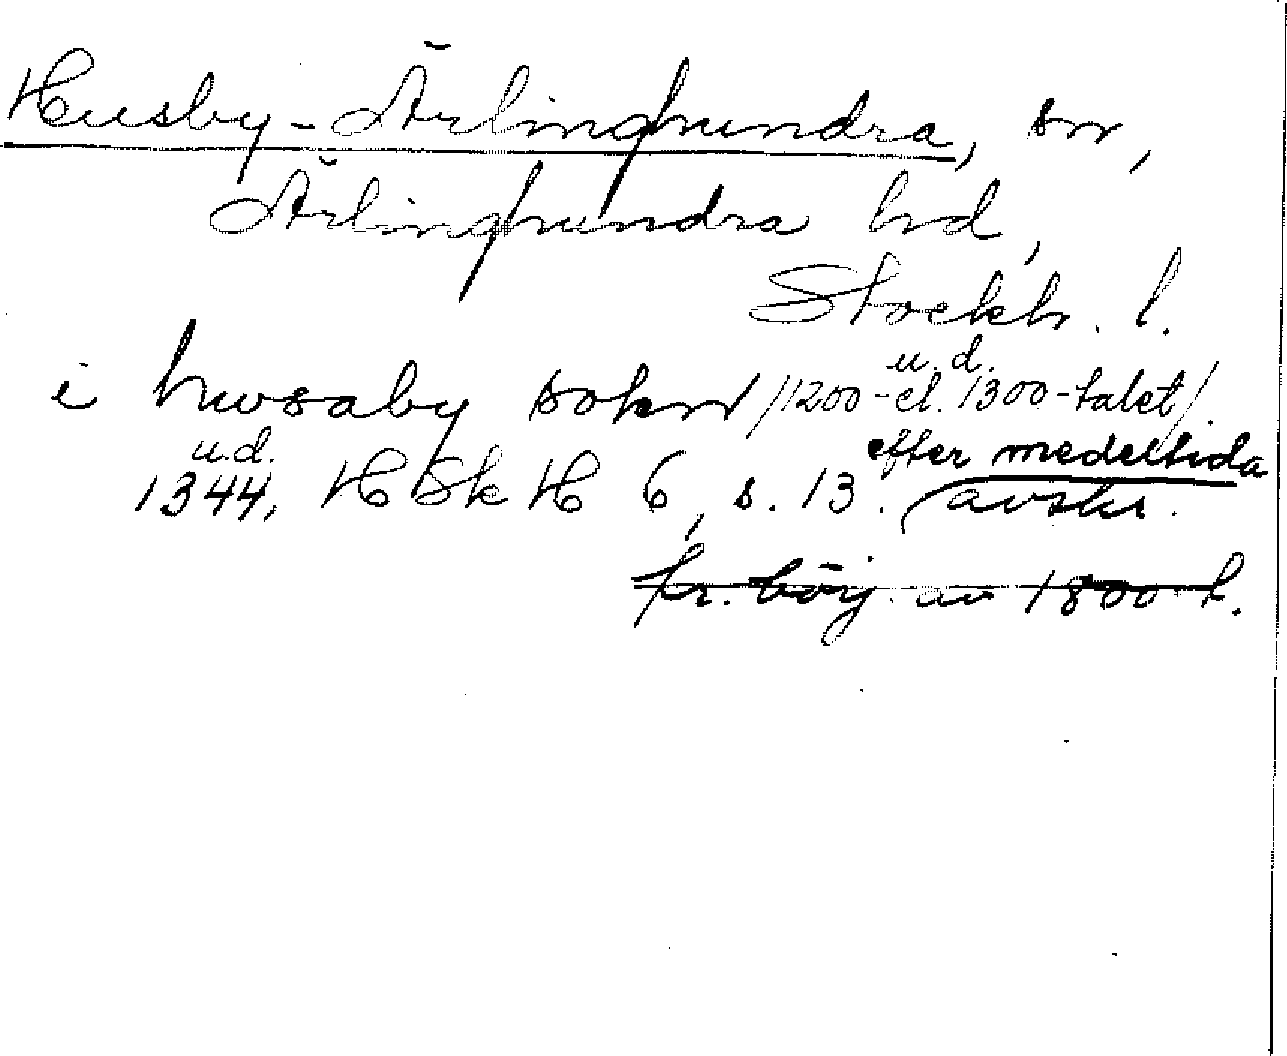 Husby-Ärlinghundra, sn,
Ärlinghundra hd,
Stockh. l.
u. d.
i hwsaby sokn /1200- el. 1300-talet/.
u.d. efter medeltida
1344, H Sk H 6, s. 13. avskr.
fr. börj. av 1800-t.